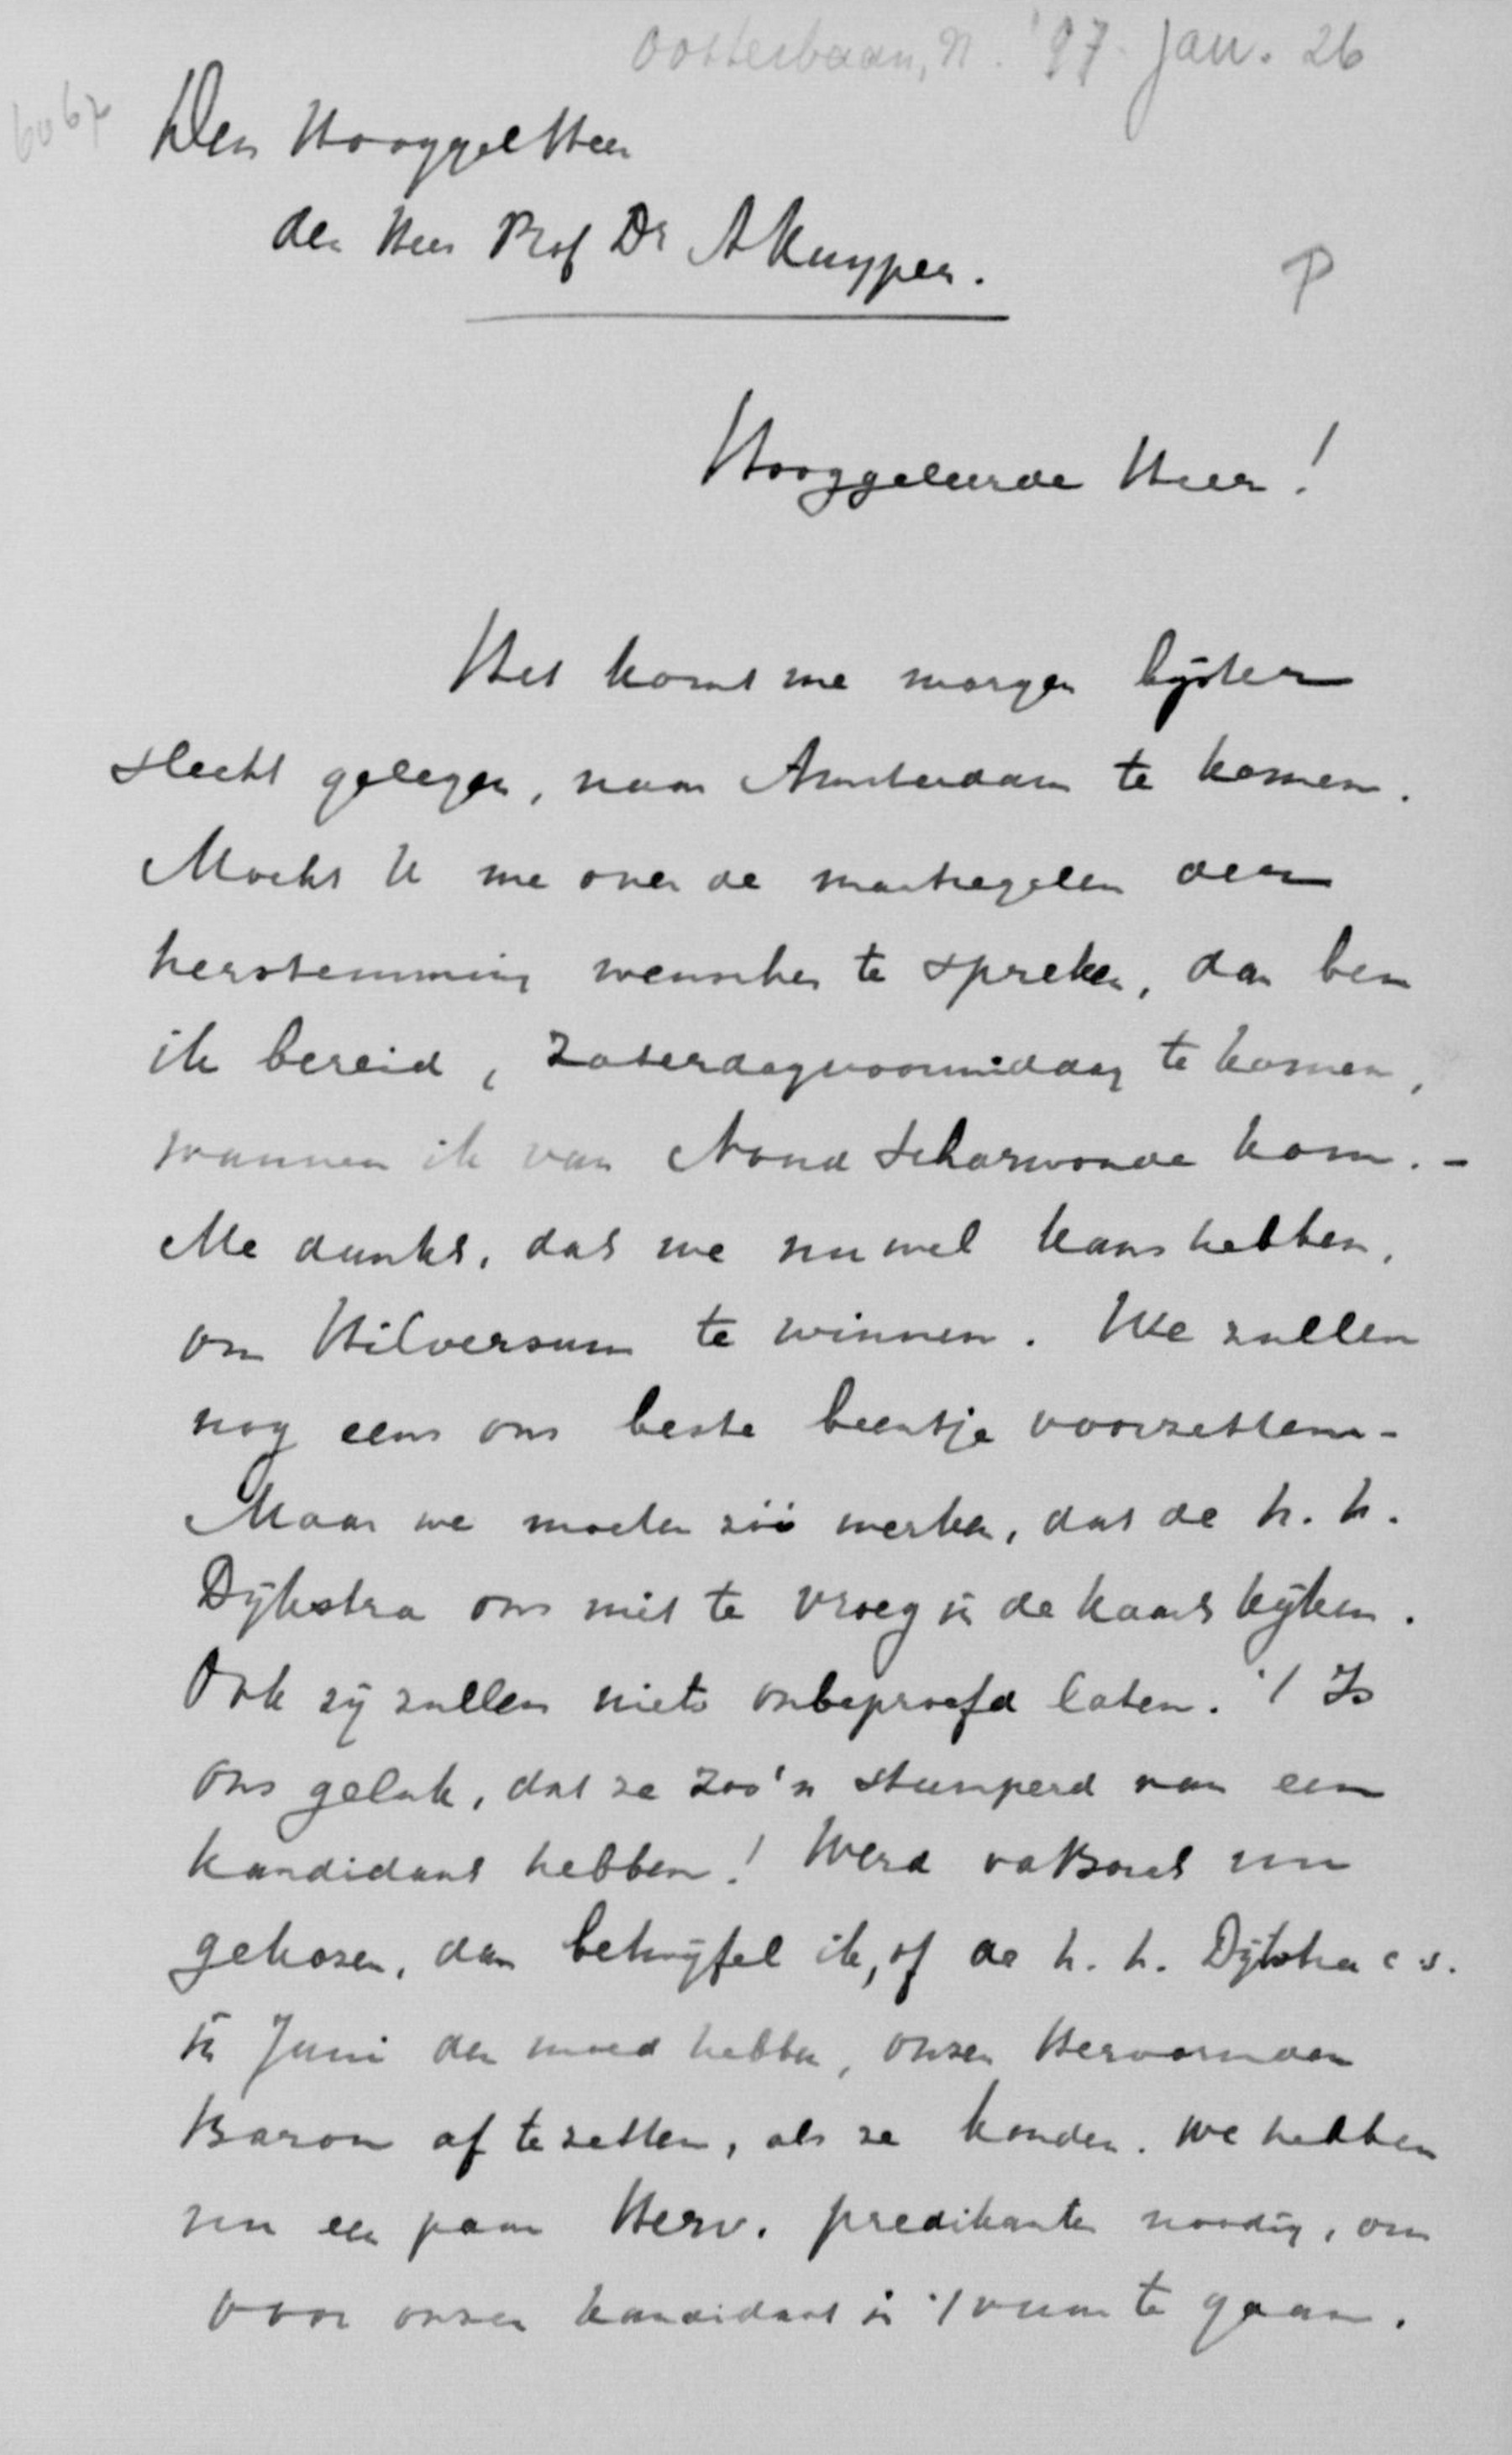 Oosterbaan, N. '97. Jan. 26
6067
Den Hooggel Heer
den Heer Prof Dr A Kuyper.
P
Hooggeleerde Heer!
Het komt me morgen bijster
slecht gelegen, naar Amsterdam te komen.
Mocht U me over de maatregelen der
herstemming wenschen te spreken, dan ben
ik bereid, Zaterdagvoormiddag te komen,
wanneer ik van Noord Scharwoude kom. -
Me dunkt, dat we nu wel kans hebben,
om Hilversum te winnen. We zullen
nog eens ons beste beentje voorzetten -
Maar we moeten zóó werken, dat de h. h.
Dijkstra ons niet te vroeg in de kaart kijken.
Ook zij zullen niets onbeproefd laten. 't Is
ons geluk, dat ze zoo'n stumperd van een
kandidaat hebben! Werd nu
gekozen, dan betwijfel ik, of de h. h. Dijkstra c.s.
in Juni den moed hebben, onzen Hervormden
Baron af te zetten, als ze konden. We hebben
nu een paar Herv. predikanten noodig, om
voor onzen kandidaat in 't vuur te gaan.